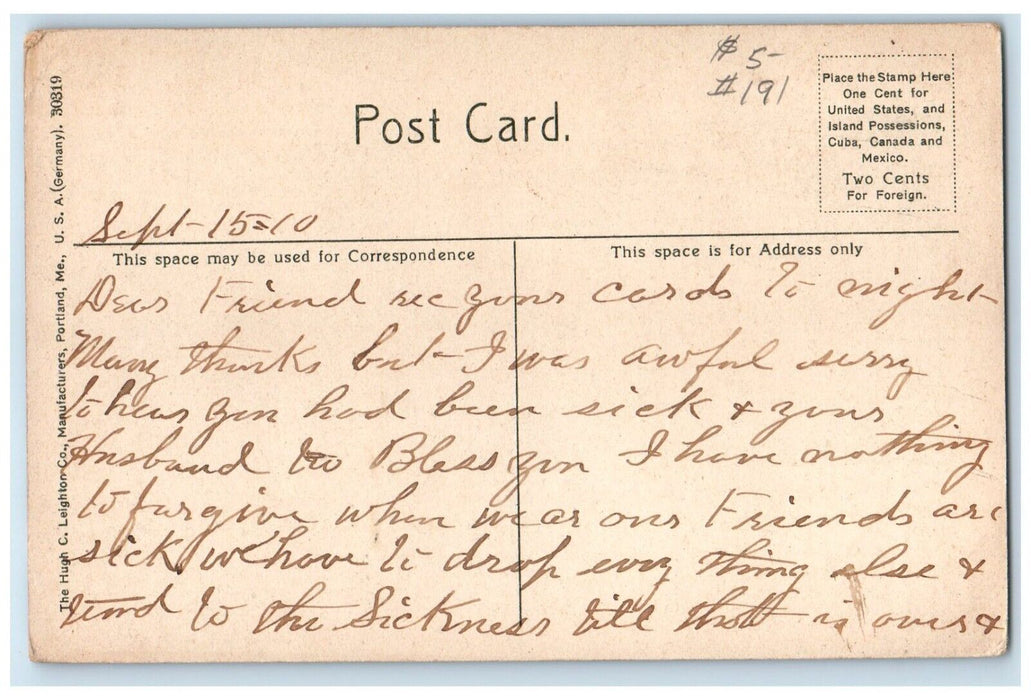 $ 5-
#191
Place the Stamp Here
One Cent for
United States, and
Island Possessions,
Cuba, Canada and
Mexico.
Two Cents
For Foreign.
Post Card.
The Hugh C. Leighton Co., Manufacturers, Portland, Me., U. S. A. (Germany). 30319
Sept-15=10
This space may be used for Correspondence
This space is for Address only
Dear Friend rec your cards to night-
Many thanks but- I was awful sorry
to hear you had been sick & your
Husband to Bless you I have nothing
to forgive when we ar our Friends are
sick we have to drop evry thing else &
tend to the Sickness till that is over &